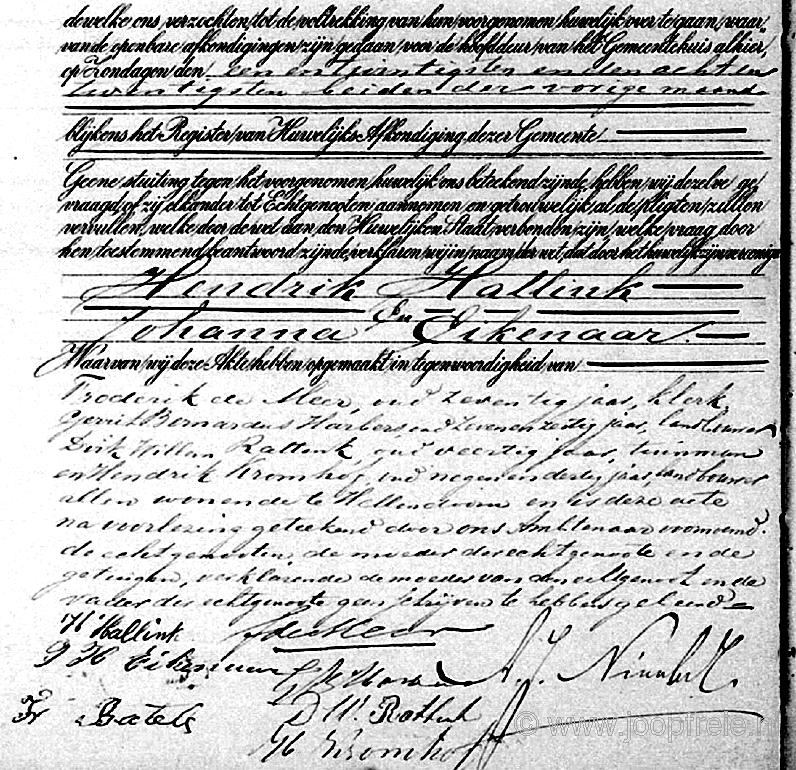 dewelke ons verzochten tot de voltrekking van hun voorgenomen huwelijk over te gaan, waar-
van de openbare afkondigingen zijn gedaan voor de hoofddeur van het Gemeentehuis alhier,
op Zondagen den een en twintigsten en den acht en
twintigsten beiden der vorige maand
blijkens het Register van Huwelijks Afkondiging dezer Gemeente
Geene stuiting tegen het voorgenomen huwelijk ons beteekend zijnde, hebben wij dezelve ge-
vraagd, of zij elkander tot Echtgenooten aannemen en getrouwelijk al de pligten zullen
vervullen, welke door de wet aan den Huwelijken Staat verbonden zijn, welke vraag door
hen toestemmend beantwoord zijnde, verklaren wij in naam der wet, dat door het huwelijk zijn vereenigd
Hendrik Hallink
En
Johanna Eikenaar.
Waarvan wij deze Akte hebben opgemaakt in tegenwoordigheid van
Frederik de Meer, oud zeventig jaar, klerk,
Gerrit Bernardus Harbers, oud zevenenzestig jaar, landbouwer
Dirk Willem Rattink, oud veertig jaar, tuinman
en Hendrik Kromhof, oud negenendertig jaar, landbouwer
allen wonende te Hellendoorn en is deze acte
na voorlezing geteekend door ons Ambtenaar voornoemd.
de echtgenooten, de moeder der echtgenoote en de
getuigen, verklarende de moeder van den echtgenoot en de
vader der echtgenoote geen schrijven te hebben geleerd
H Hallink
F de Meer
J H Eikenaar
D W. Rattink
Bartels
H Kromhof
© www.joopfrele.nl